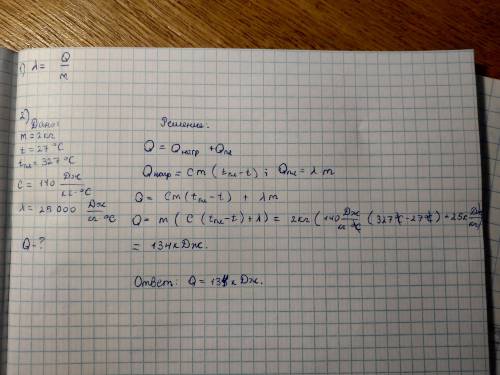 1) λ = Q/m
2)
Дано:
m = 2кг
t = 27 °C
tпл = 327 °C
C = 140 Дж/кг·°C
λ = 25 000 Дж/кг °C
Q - ?
Решение:
Q = Qнагр + Qпл
Qнагр = Cm (tпл - t) ; Qпл = λ m
Q = Cm (tпл - t) + λm
Q = m ( C ( tпл - t) + λ) = 2кг ( 140 Дж/кг °C ( 327°C - 27°C) + 25к Дж/кг)
= 134 к Дж.
Ответ: Q = 134 к Дж.